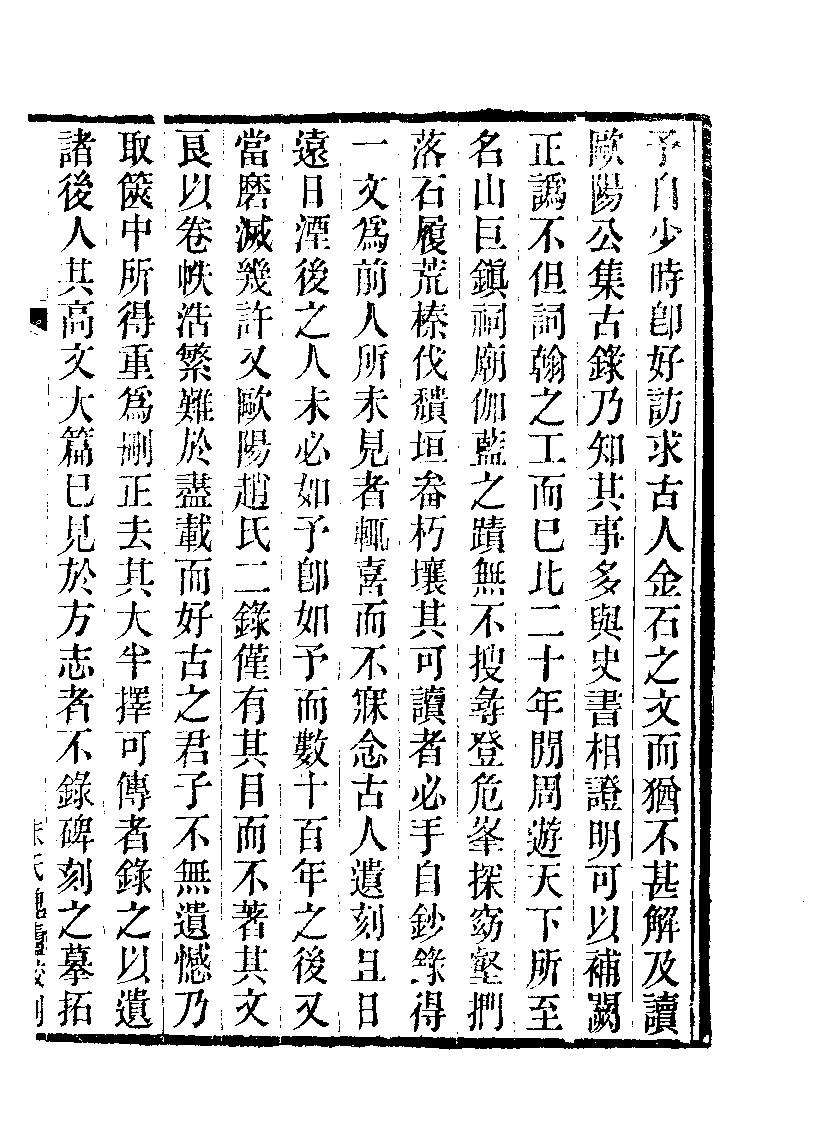 予自少時卽好訪求古人金石之文而猶不甚解及讀
歐陽公集古錄乃知其事多與史書相證明可以補闕
正譌不但詞翰之工而已比二十年閒周遊天下所至
名山巨鎭祠廟伽藍之蹟無不搜尋登危峯探窈壑捫
落石履荒榛伐頹垣畚朽壤其可讀者必手自鈔錄得
一文爲前人所未見者輒喜而不寐念古人遺刻且日
遠日湮後之人未必如予卽如予而數十百年之後又
當磨滅幾許又歐陽趙氏二錄僅有其目而不著其文
良以卷帙浩繁難於盡載而好古之君子不無遺憾乃
取篋中所得重爲刪正去其大半擇可傳者錄之以遺
諸後人其高文大篇已見於方志者不錄碑刻之摹拓
朱氏槐廬校刊